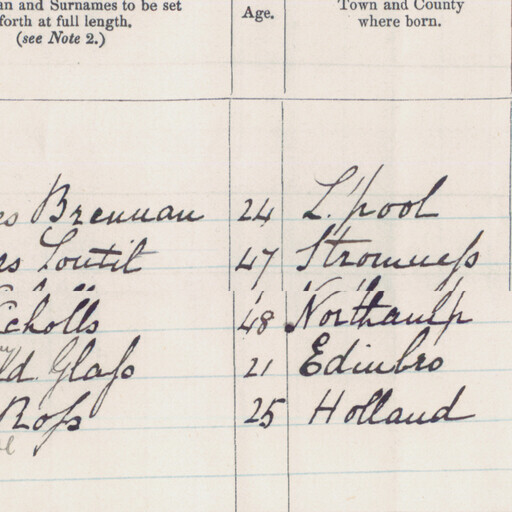 an and Surnames to be set
forth at full length.
(see Note 2.)
Age.
Town and County
where born.
es Brennan 24 L'pool
rs Loutit 47 Stromness
icholls 48 Northamp
ld Glass 21 Edinbro
Ross 25 Holland